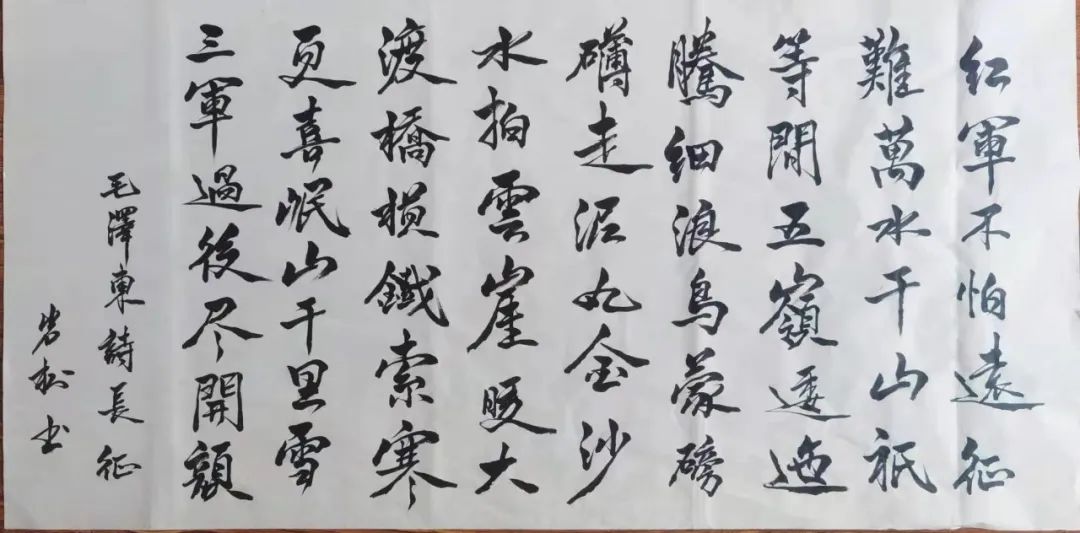 紅軍不怕遠征
難萬水千山祇
等閒五嶺逶迤
騰細浪烏蒙磅
礴走泥丸金沙
水拍雲崖暖大
渡橋橫鐵索寒
更喜岷山千里雪
三軍過後尽開顏
毛澤東詩長征
岩松书